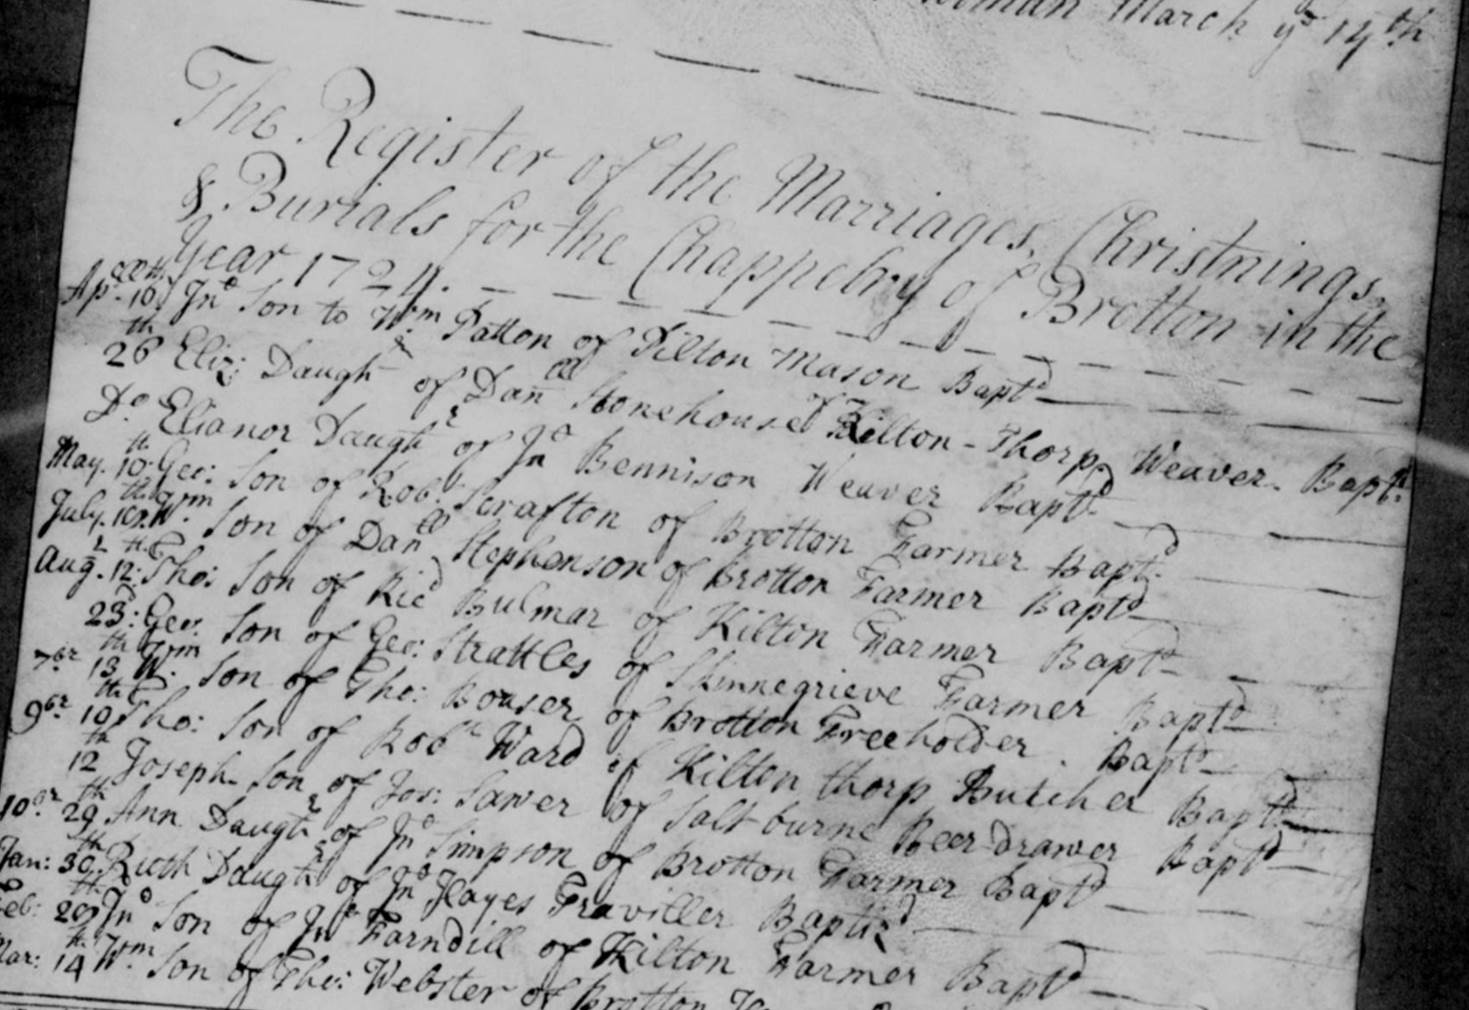 March ye 14th
The Register of the Marriages, Christnings,
& Burials for the Chappelry of Brotton in the
Year 1724.
Apr. 10 Jno Son to Wm Patton of Kilton Mason Baptd
26th Eliz: Daughr of Danll Stonehouse of Kilton-Thorp Weaver Baptd
Do Elianor Daughr of Jno Bennison Weaver Baptd
May. 10th Geo: Son of Robt Scrafton of Brotton Farmer Baptd
July. Wm Son of Danll Stephenson of Brotton Farmer Baptd
Augt. 12th: Tho: Son of Ricd Bulmar of Kilton Farmer Baptd
23d: Geo: Son of Geo: Strattles of Skinnegrieve Farmer Baptd
7br 13th Wm Son of Tho: Bouser of Brotton Freeholder. Baptd
9br 10th Tho: Son of Robt Ward of Kilton thorp Butcher Baptd
12th Joseph Son of Jos: Sawer of Saltburne Beer drawer Baptd
10br 29th Ann Daughr of Jno Simpson of Brotton Farmer Baptd
Jan: 30th Ruth Daughr of Jno Hayes Traviller Baptizd
Feb: Jno Son of Jno Farndill of Kilton Farmer Baptd
Mar: 14th Wm Son of Tho: Webster of Brotton